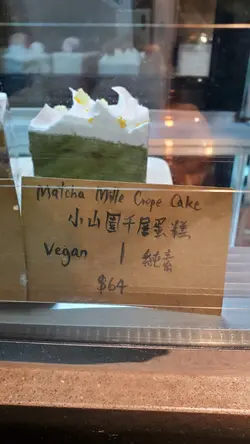 Matcha Mille Crepe Cake
小山園千層蛋糕
Vegan | 純素
$64